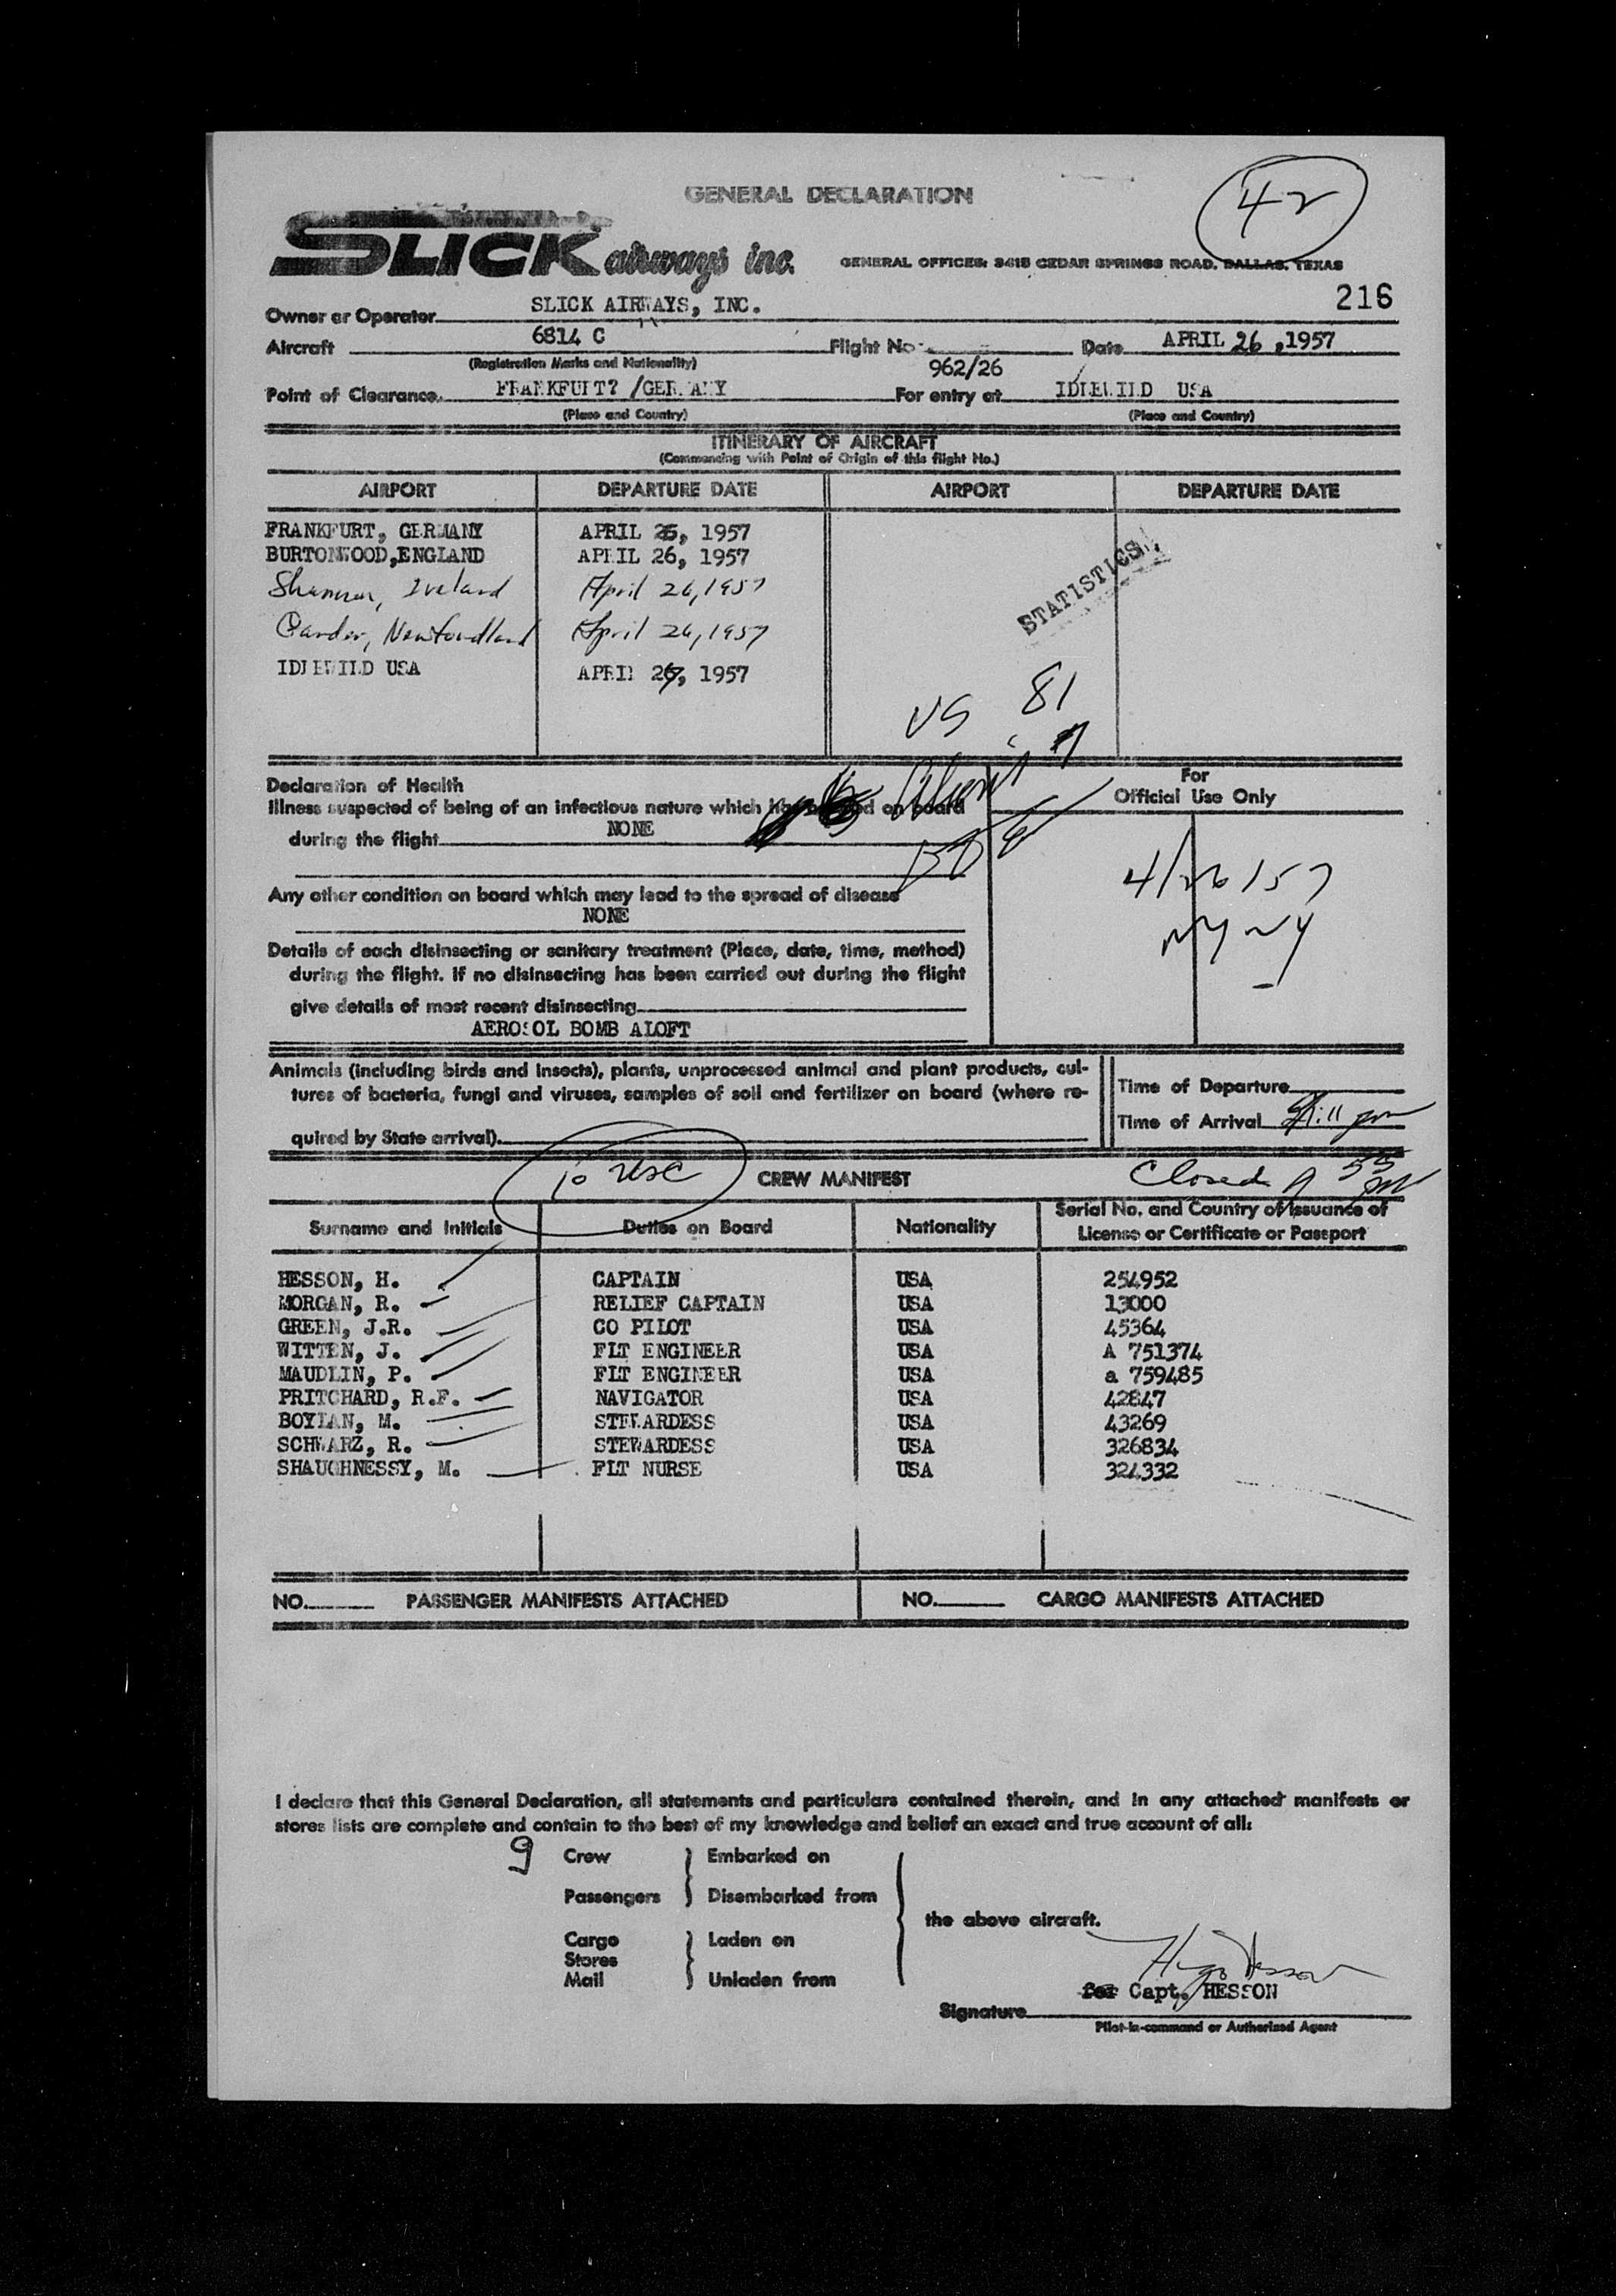 GENERAL DECLARATION
42
SLICK airways inc. GENERAL OFFICES: 3415 CEDAR SPRINGS ROAD, DALLAS, TEXAS
216
Owner or Operator SLICK AIRWAYS, INC.
Aircraft 6814 C Flight No. 962/26 Date APRIL 26, 1957
(Registration Marks and Nationality)
Point of Clearance FRANKFUIT? /GERMANY For entry at IDLEWILD USA
(Place and Country) (Place and Country)
ITINERARY OF AIRCRAFT
(Commencing with Point of Origin of this flight No.)
AIRPORT DEPARTURE DATE AIRPORT DEPARTURE DATE
FRANKFURT, GERMANY APRIL 25, 1957
BURTONWOOD,ENGLAND APRIL 26, 1957
STATISTICS
Shannon, Ireland April 26, 1957
Gander, Newfoundland April 26, 1957
IDLEWILD USA APRIL 26, 1957
US 81
Declaration of Health
Illness suspected of being of an infectious nature which has on board
during the flight NONE
For
Official Use Only
4/26/57
NY NY
Any other condition on board which may lead to the spread of disease
NONE
Details of each disinsecting or sanitary treatment (Place, date, time, method)
during the flight. If no disinsecting has been carried out during the flight
give details of most recent disinsecting
AEROSOL BOMB ALOFT
Animals (including birds and insects), plants, unprocessed animal and plant products, cul-
tures of bacteria, fungi and viruses, samples of soil and fertilizer on board (where re-
quired by State arrival).
Time of Departure
Time of Arrival :11 pm
10 USC CREW MANIFEST Closed
Surname and Initials Duties on Board Nationality Serial No. and Country of Issuance of
License or Certificate or Passport
HESSON, H. CAPTAIN USA 254952
MORGAN, R. RELIEF CAPTAIN USA 13000
GREEN, J.R. CO PILOT USA 45364
WITTEN, J. FLT ENGINEER USA A 751374
MAUDLIN, P. FLT ENGINEER USA a 759485
PRITCHARD, R.F. NAVIGATOR USA 42847
BOYLAN, M. STEWARDESS USA 43269
SCHWARZ, R. STEWARDESS USA 326834
SHAUGHNESSY, M. FLT NURSE USA 324332
NO. PASSENGER MANIFESTS ATTACHED NO. CARGO MANIFESTS ATTACHED
I declare that this General Declaration, all statements and particulars contained therein, and in any attached manifests or
stores lists are complete and contain to the best of my knowledge and belief an exact and true account of all:
9 Crew Embarked on
Passengers Disembarked from
the above aircraft.
Cargo Laden on
Stores
Mail Unladen from
Hugo Hesson
for Capt. HESSON
Signature
Pilot-in-command or Authorized Agent